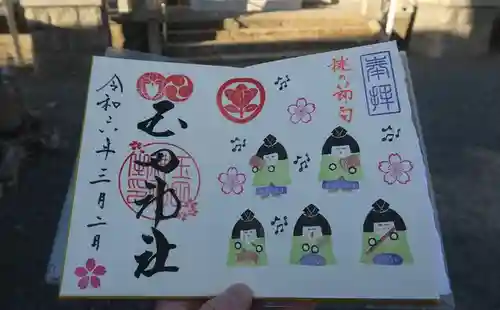 奉拝
桃の節句
玉田神社
令和六年三月二日